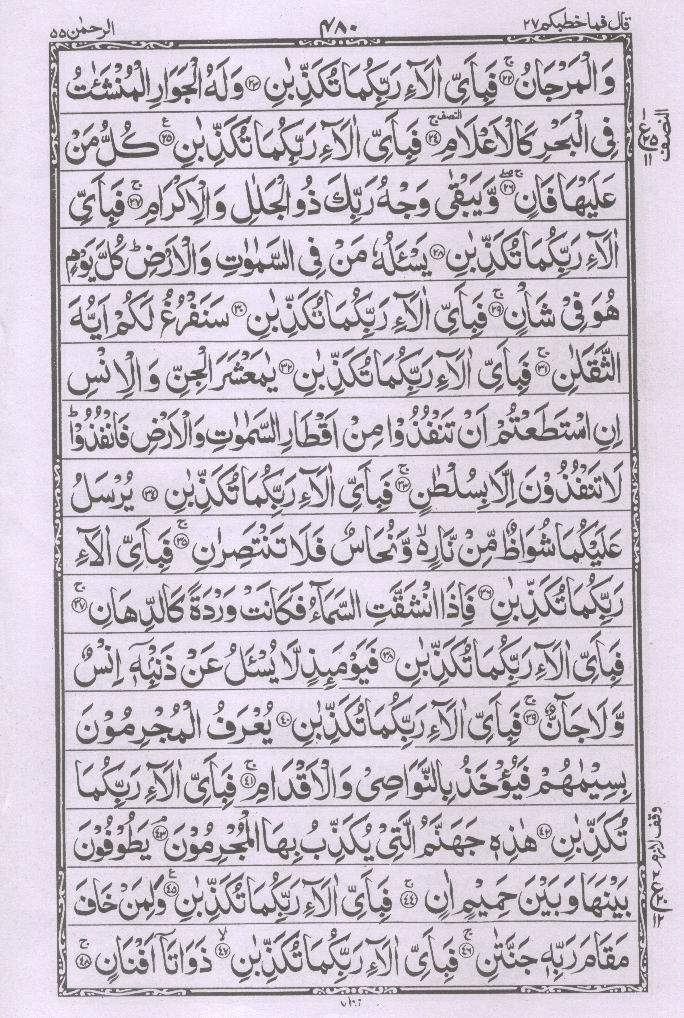 قال فما خطبكم ٢٧ ٤٨٠ الرحمٰن ٥٥
وَالْمَرْجَانُ ۚ﴿۲۲﴾ فَبِاَيِّ اٰلَآءِ رَبِّكُمَا تُكَذِّبٰنِ ﴿۲۳﴾ وَلَهُ الْجَوَارِ الْمُنْشَئٰتُ
فِي الْبَحْرِ كَالْاَعْلَامِ ۚ﴿۲۴﴾ فَبِاَيِّ اٰلَآءِ رَبِّكُمَا تُكَذِّبٰنِ ﴿۲۵﴾ كُلُّ مَنْ
عَلَيْهَا فَانٍ ۚۖ﴿۲۶﴾ وَّيَبْقٰى وَجْهُ رَبِّكَ ذُو الْجَلٰلِ وَالْاِكْرَامِ ۚ﴿۲۷﴾ فَبِاَيِّ
اٰلَآءِ رَبِّكُمَا تُكَذِّبٰنِ ﴿۲۸﴾ يَسْـَٔلُهٗ مَنْ فِي السَّمٰوٰتِ وَالْاَرْضِ ؕ كُلَّ يَوْمٍ
هُوَ فِيْ شَاْنٍ ۚ﴿۲۹﴾ فَبِاَيِّ اٰلَآءِ رَبِّكُمَا تُكَذِّبٰنِ ﴿۳۰﴾ سَنَفْرُغُ لَكُمْ اَيُّهَ
الثَّقَلٰنِ ۚ﴿۳۱﴾ فَبِاَيِّ اٰلَآءِ رَبِّكُمَا تُكَذِّبٰنِ ﴿۳۲﴾ يٰمَعْشَرَ الْجِنِّ وَالْاِنْسِ
اِنِ اسْتَطَعْتُمْ اَنْ تَنْفُذُوْا مِنْ اَقْطَارِ السَّمٰوٰتِ وَالْاَرْضِ فَانْفُذُوْا ؕ
لَا تَنْفُذُوْنَ اِلَّا بِسُلْطٰنٍ ۚ﴿۳۳﴾ فَبِاَيِّ اٰلَآءِ رَبِّكُمَا تُكَذِّبٰنِ ﴿۳۴﴾ يُرْسَلُ
عَلَيْكُمَا شُوَاظٌ مِّنْ نَّارٍ ۙ۬ وَّنُحَاسٌ فَلَا تَنْتَصِرٰنِ ۚ﴿۳۵﴾ فَبِاَيِّ اٰلَآءِ
رَبِّكُمَا تُكَذِّبٰنِ ﴿۳۶﴾ فَاِذَا انْشَقَّتِ السَّمَآءُ فَكَانَتْ وَرْدَةً كَالدِّهَانِ ۚ﴿۳۷﴾
فَبِاَيِّ اٰلَآءِ رَبِّكُمَا تُكَذِّبٰنِ ﴿۳۸﴾ فَيَوْمَئِذٍ لَّا يُسْـَٔلُ عَنْ ذَنْۢبِهٖۤ اِنْسٌ
وَّلَا جَآنٌّ ۚ﴿۳۹﴾ فَبِاَيِّ اٰلَآءِ رَبِّكُمَا تُكَذِّبٰنِ ﴿۴۰﴾ يُعْرَفُ الْمُجْرِمُوْنَ
بِسِيْمٰهُمْ فَيُؤْخَذُ بِالنَّوَاصِيْ وَالْاَقْدَامِ ۚ﴿۴۱﴾ فَبِاَيِّ اٰلَآءِ رَبِّكُمَا
تُكَذِّبٰنِ ﴿۴۲﴾ هٰذِهٖ جَهَنَّمُ الَّتِيْ يُكَذِّبُ بِهَا الْمُجْرِمُوْنَ ۘ﴿۴۳﴾ يَطُوْفُوْنَ
بَيْنَهَا وَبَيْنَ حَمِيْمٍ اٰنٍ ۚ﴿۴۴﴾ فَبِاَيِّ اٰلَآءِ رَبِّكُمَا تُكَذِّبٰنِ ﴿۴۵﴾ وَلِمَنْ خَافَ
مَقَامَ رَبِّهٖ جَنَّتٰنِ ۚ﴿۴۶﴾ فَبِاَيِّ اٰلَآءِ رَبِّكُمَا تُكَذِّبٰنِ ۙ﴿۴۷﴾ ذَوَاتَاۤ اَفْنَانٍ ۚ﴿۴۸﴾
النصف
٢٥
وقف لازم